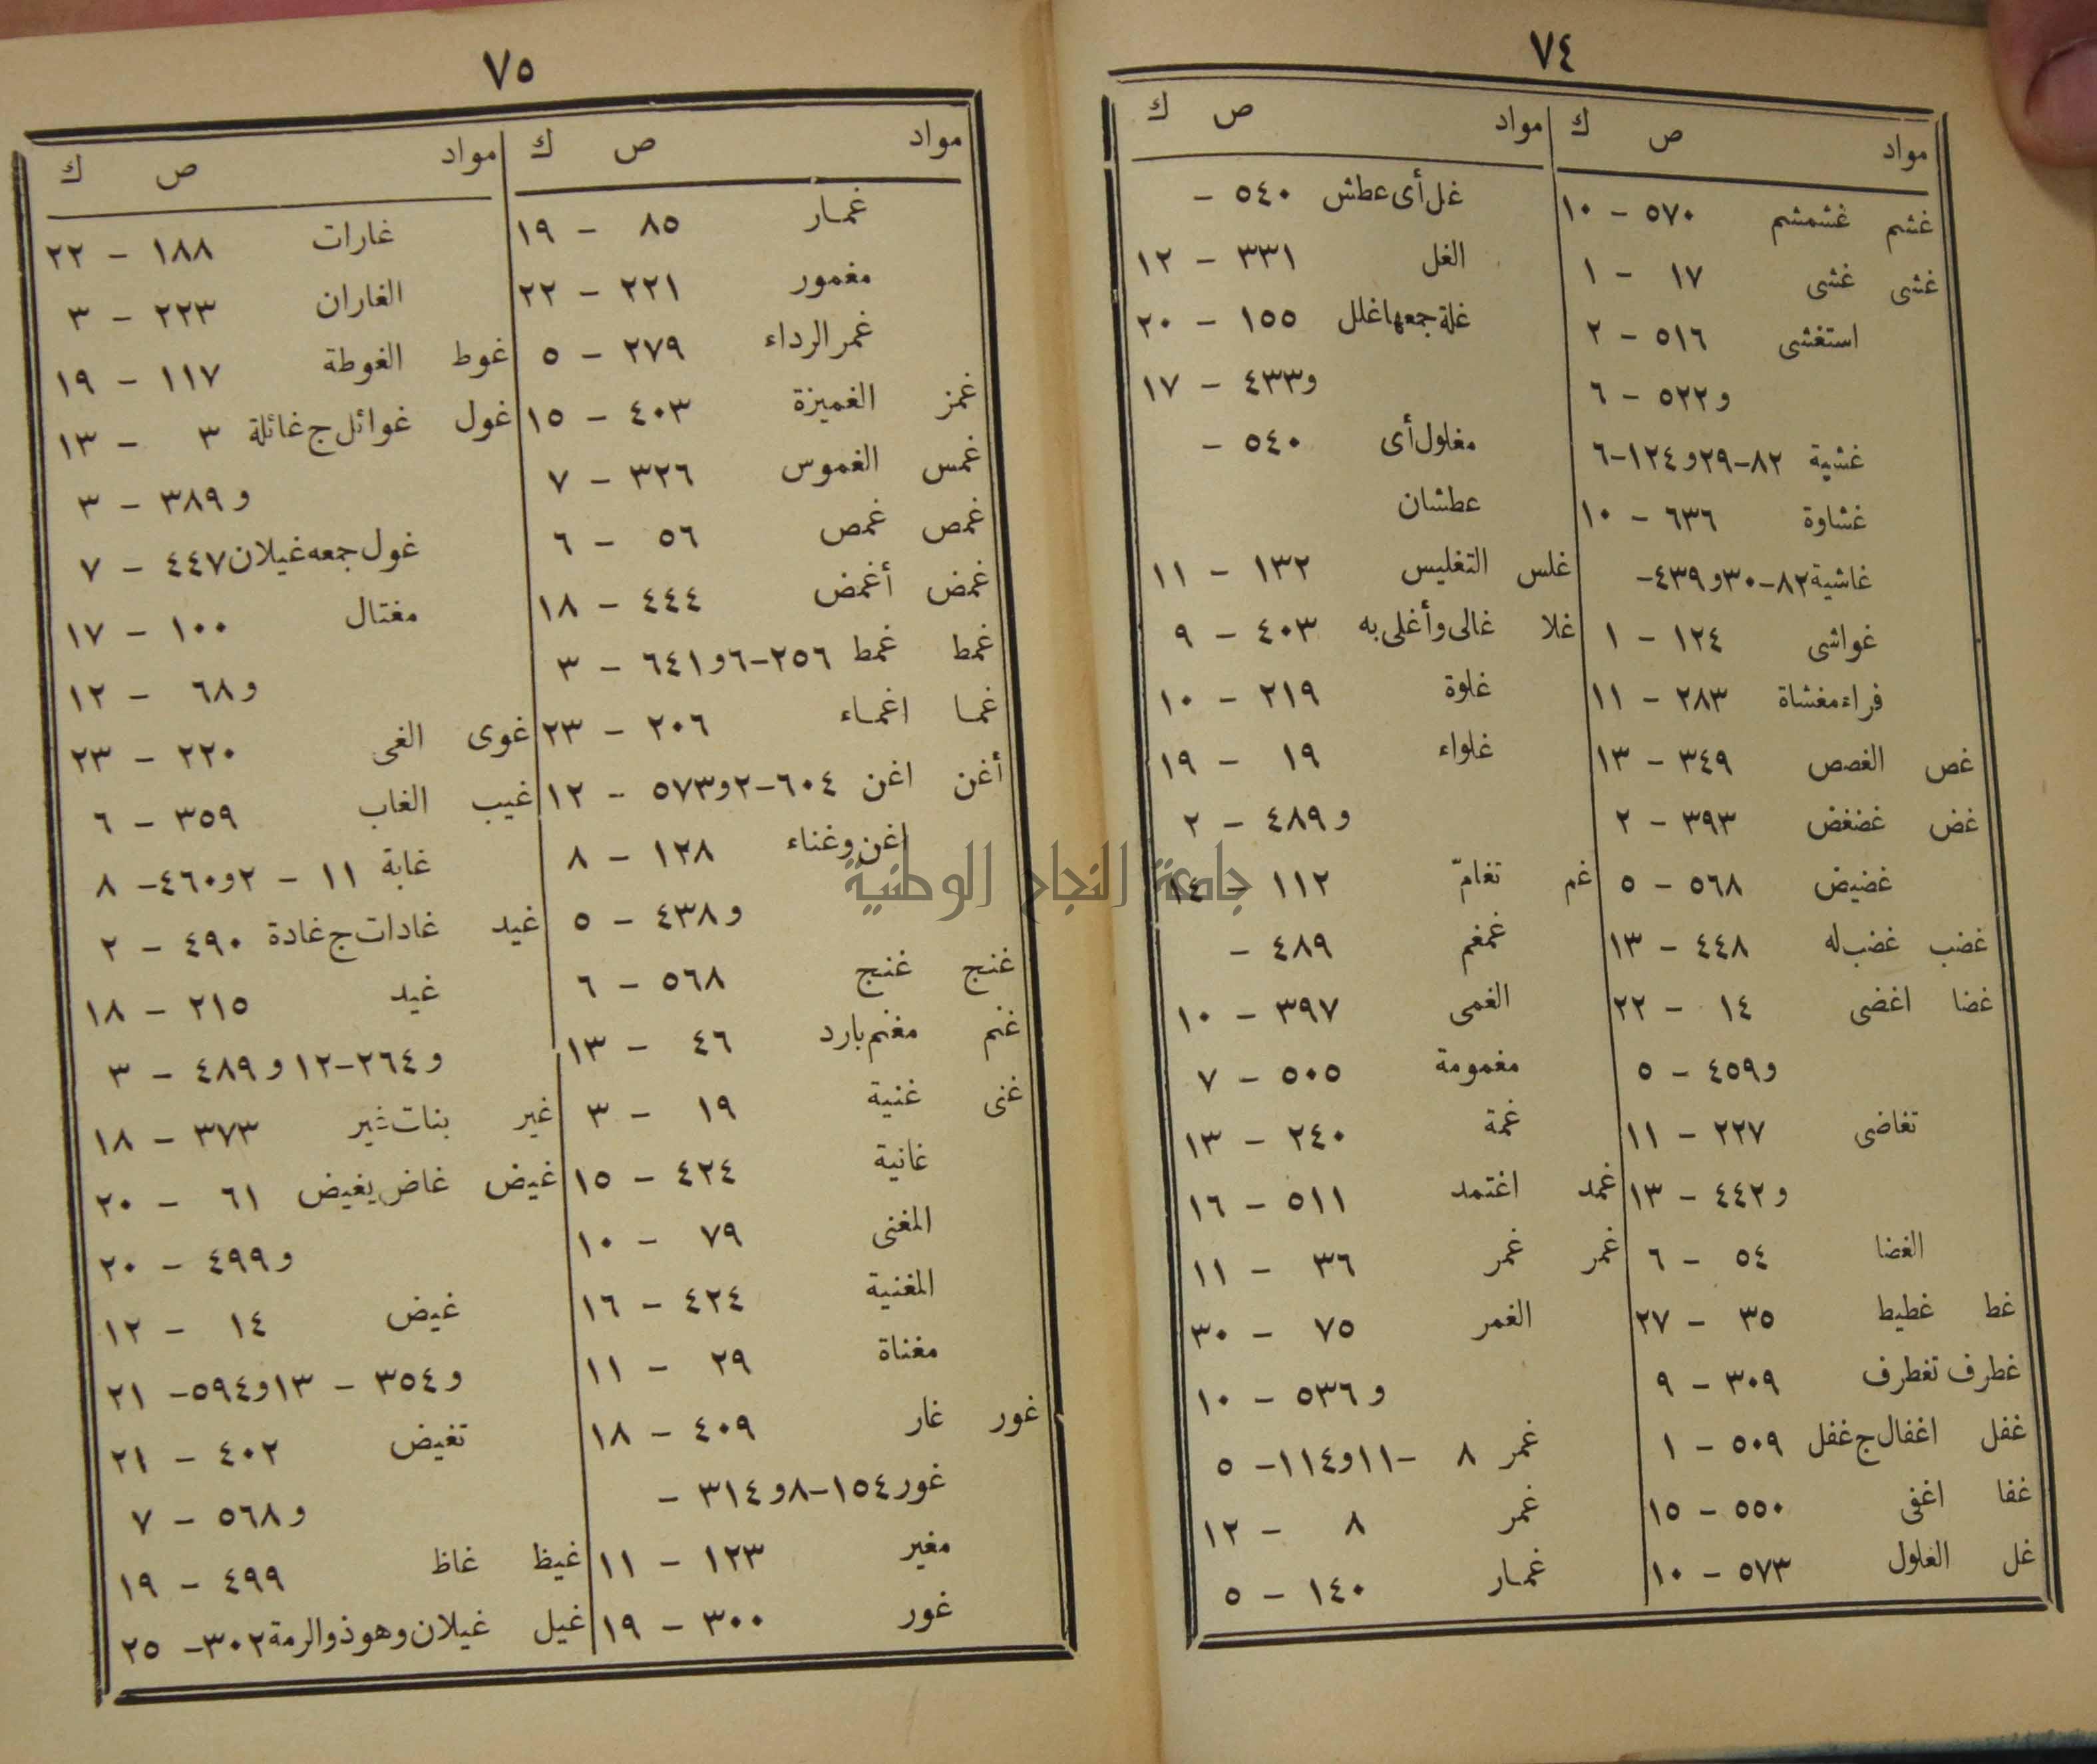 ٧٤
مواد ص ك
غشم غشمشم ٥٧٠ - ١٠
غشى غشى ١٧ - ١
استغشى ٥١٦ - ٢
و ٥٢٢ - ٦
غشية ٨٢-٢٩و١٢٤-٦
غشاوة ٦٣٦ - ١٠
غاشية ٨٢-٣٠و٤٣٩-
غواشى ١٢٤ - ١
فراء مغشاة ٢٨٣ - ١١
غص الغصص ٣٤٩ - ١٣
غض غضغض ٣٩٣ - ٢
غضيض ٥٦٨ - ٥
غضب غضب له ٤٤٨ - ١٣
غضا اغضى ١٤ - ٢٢
و ٤٥٩ - ٥
تغاضى ٢٢٧ - ١١
و ٤٤٢ - ١٣
الغضا ٥٤ - ٦
غط غطيط ٣٥ - ٢٧
غطرف تغطرف ٣٠٩ - ٩
غفل اغفال ج غفل ٥٠٩ - ١
غفا اغفى ٥٥٠ - ١٥
غل الغلول ٥٧٣ - ١٠
مواد ص ك
غل أى عطش ٥٤٠ -
الغل ٣٣١ - ١٢
غلة جمعها غلل ١٥٥ - ٢٠
و ٤٣٣ - ١٧
مغلول أى ٥٤٠ -
عطشان
غلس التغليس ١٣٢ - ١١
غلا غالى وأغلى به ٤٠٣ - ٩
غلوة ٢١٩ - ١٠
غلواء ١٩ - ١٩
و ٤٨٩ - ٢
غم تغامّ ١١٢ - ١٤
غمغم ٤٨٩ -
الغمى ٣٩٧ - ١٠
مغمومة ٥٠٥ - ٧
غمة ٢٤٠ - ١٣
غمد اغتمد ٥١١ - ١٦
غمر غمر ٣٦ - ١١
الغمر ٧٥ - ٣٠
و ٥٣٦ - ١٠
غمر ٨ -١١و١١٤- ٥
غمر ٨ - ١٢
غمار ١٤٠ - ٥
٧٥
مواد ص ك
غمار ٨٥ - ١٩
مغمور ٢٢١ - ٢٢
غمر الرداء ٢٧٩ - ٥
غمز الغميزة ٤٠٣ - ١٥
غمس الغموس ٣٢٦ - ٧
غمص غمص ٥٦ - ٦
غمض أغمض ٤٤٤ - ١٨
غمط غمط ٢٥٦-٦و٦٤١ - ٣
غما اغماء ٢٠٦ - ٢٣
أغن اغن ٦٠٤-٢و٥٧٣ - ١٢
اغن وغناء ١٢٨ - ٨
و ٤٣٨ - ٥
غنج غنج ٥٦٨ - ٦
غنم مغنم بارد ٤٦ - ١٣
غنى غنية ١٩ - ٣
غانية ٤٢٤ - ١٥
المغنى ٧٩ - ١٠
المغنية ٤٢٤ - ١٦
مغناة ٢٩ - ١١
غور غار ٤٠٩ - ١٨
غور ١٥٤-٨و٣١٤ -
مغير ١٢٣ - ١١
غور ٣٠٠ - ١٩
مواد ص ك
غارات ١٨٨ - ٢٢
الغاران ٢٢٣ - ٣
غوط الغوطة ١١٧ - ١٩
غول غوائل ج غائلة ٣ - ١٣
و ٣٨٩ - ٣
غول جمعه غيلان ٤٤٧ - ٧
مغتال ١٠٠ - ١٧
و ٦٨ - ١٢
غوى الغى ٢٢٠ - ٢٣
غيب الغاب ٣٥٩ - ٦
غابة ١١ - ٢و٤٦٠- ٨
غيد غادات ج غادة ٤٩٠ - ٢
غيد ٢١٥ - ١٨
و ٢٦٤-١٢ و ٤٨٩ - ٣
غير بنات غير ٣٧٣ - ١٨
غيض غاض يغيض ٦١ - ٢٠
و ٤٩٩ - ٢٠
غيض ١٤ - ١٢
و ٣٥٤ - ١٣و٥٩٤- ٢١
تغيض ٤٠٢ - ٢١
و ٥٦٨ - ٧
غيظ غاظ ٤٩٩ - ١٩
غيل غيلان وهو ذو الرمة ٣٠٢- ٢٥
جامعة النجاح الوطنية